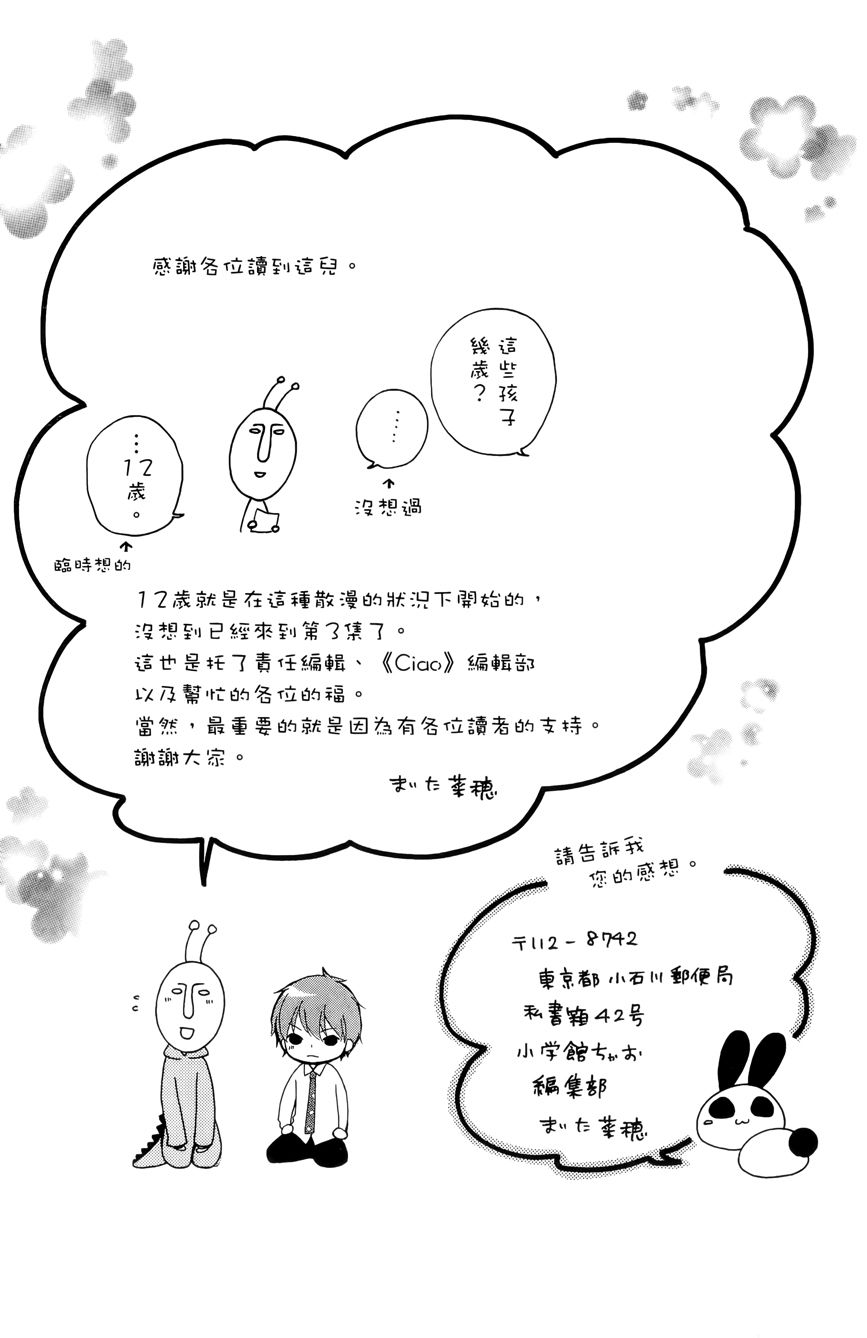 感謝各位讀到這兒。
這些孩子
幾歲？
……
↑
沒想過
…12歲。
↑
臨時想的
12歲就是在這種散漫的狀況下開始的，
沒想到已經來到第3集了。
這也是托了責任編輯、《Ciao》編輯部
以及幫忙的各位的福。
當然，最重要的就是因為有各位讀者的支持。
謝謝大家。
まいた菜穂
請告訴我
您的感想。
〒112-8742
東京都小石川郵便局
私書箱42号
小学館ちゃお
編集部
まいた菜穂